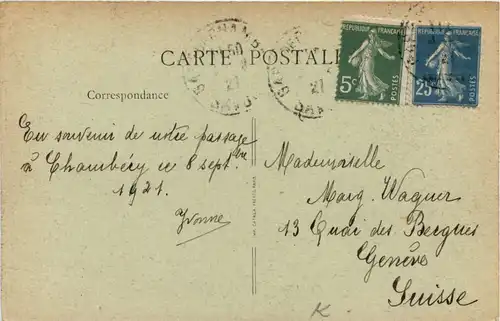 CARTE POSTALE
REPUBLIQUE FRANÇAISE
5c
REPUBLIQUE FRANÇAISE
25c
Correspondance
En souvenir de notre passage
à Chambéry le 8 septbre
1921.
Yvonne
Mademoiselle
Marg. Wagner
13 Quai des Bergues
Genève
Suisse
K